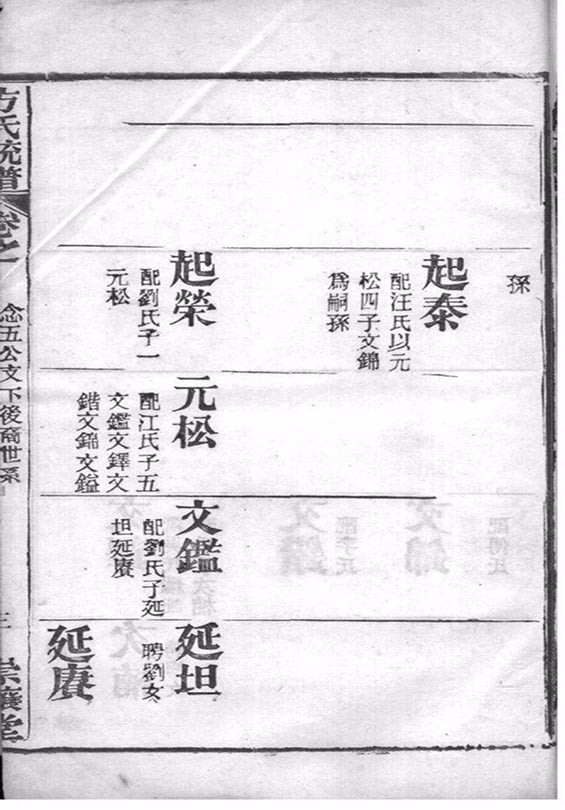 孫
起泰
配汪氏以元
松四子文錦
爲嗣孫
起榮
配劉氏子一
元松
元松
配江氏子五
文鑑文鐸文
鍇文錦文鎰
文鑑
配劉氏子延
坦延賡
延坦
聘劉女
延賡
方氏統譜
卷之一
念五公文下後裔世系
三